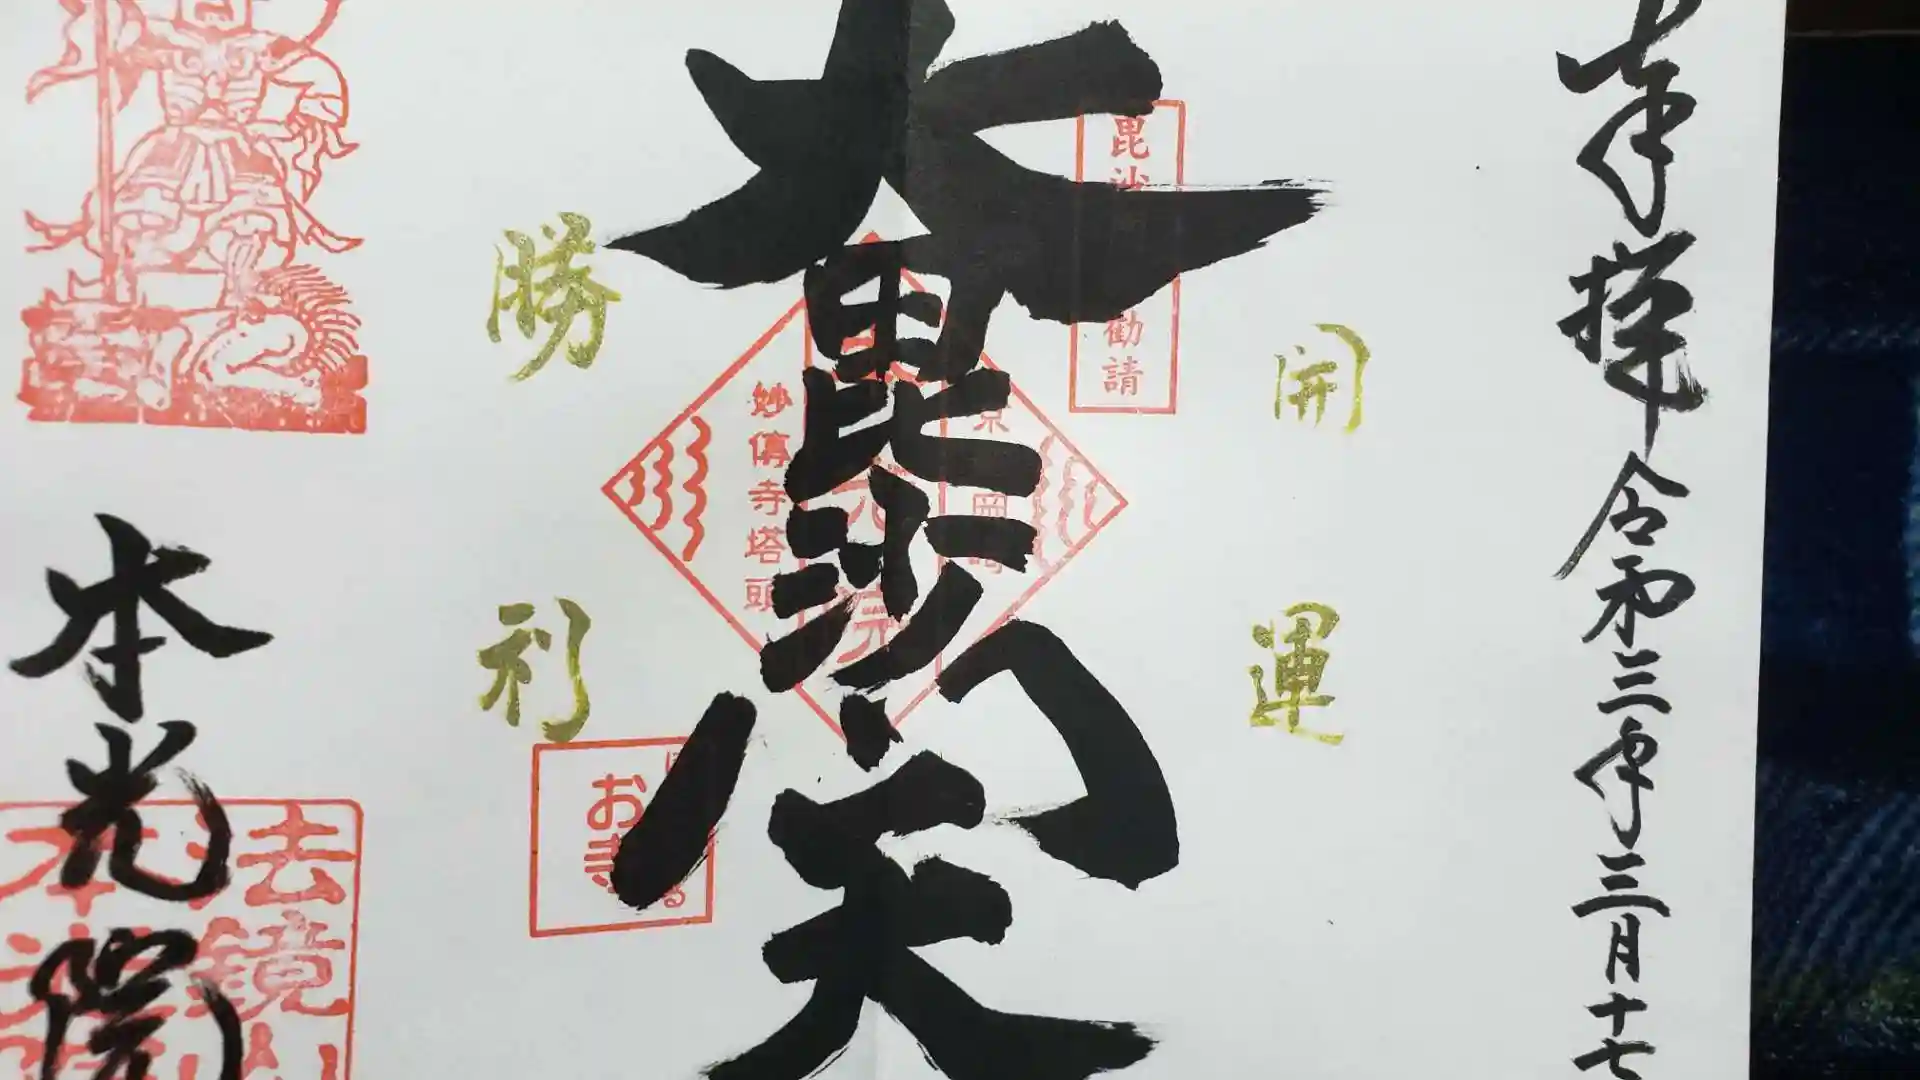 奉拝 令和三年三月十七
毘沙
勧請
開運
大毘沙門天
京岡崎
妙傳寺塔頭
勝利
お寺
本光院
去鏡